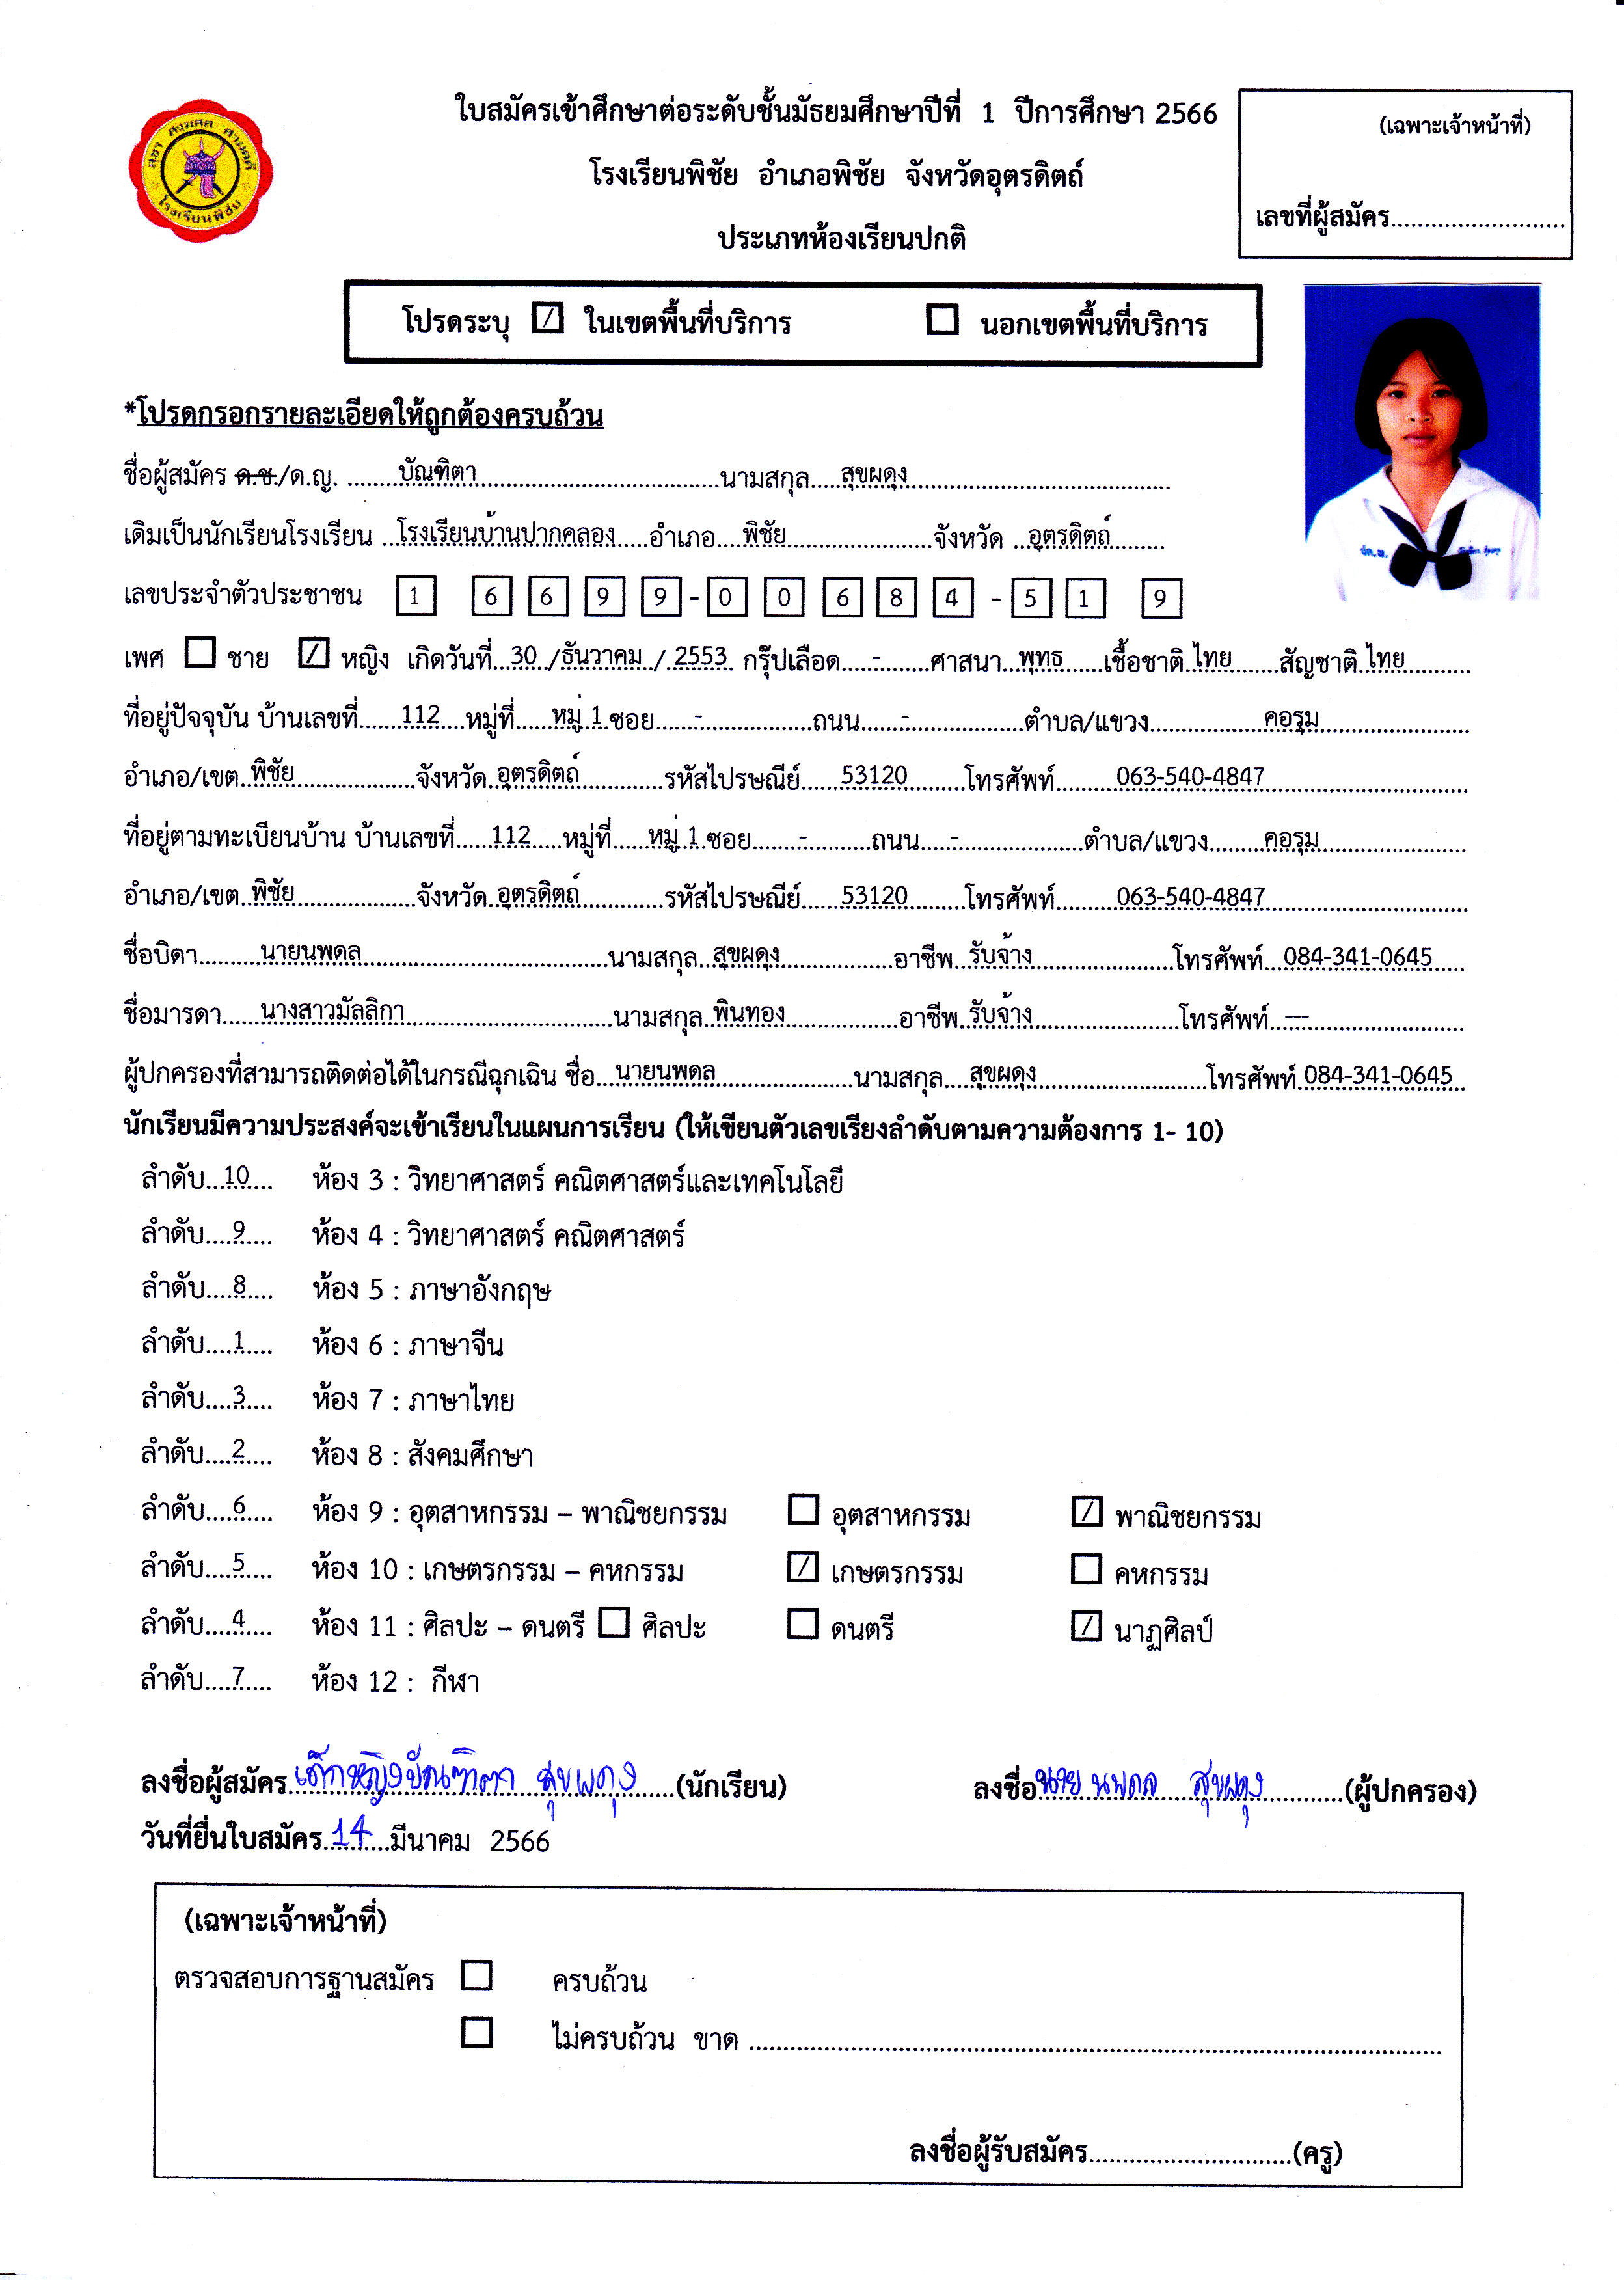 สุขา สงฺฆสฺส สามคฺคี
โรงเรียนพิชัย
ใบสมัครเข้าศึกษาต่อระดับชั้นมัธยมศึกษาปีที่ 1 ปีการศึกษา 2566
โรงเรียนพิชัย อำเภอพิชัย จังหวัดอุตรดิตถ์
ประเภทห้องเรียนปกติ
(เฉพาะเจ้าหน้าที่)
เลขที่ผู้สมัคร..........................
โปรดระบุ [/] ในเขตพื้นที่บริการ [ ] นอกเขตพื้นที่บริการ
*โปรดกรอกรายละเอียดให้ถูกต้องครบถ้วน
ชื่อผู้สมัคร ด.ช./ด.ญ. ........บัณฑิตา........นามสกุล.....สุขผดุง........
เดิมเป็นนักเรียนโรงเรียน ...โรงเรียนบ้านปากคลอง.....อำเภอ....พิชัย........จังหวัด ...อุตรดิตถ์........
เลขประจำตัวประชาชน 1 6 6 9 9 - 0 0 6 8 4 - 5 1 9
เพศ [ ] ชาย [/] หญิง เกิดวันที่...30../ธันวาคม../..2553. กรุ๊ปเลือด.....-.......ศาสนา...พุทธ......เชื้อชาติ.ไทย.......สัญชาติ.ไทย.........
ที่อยู่ปัจจุบัน บ้านเลขที่.......112....หมู่ที่......หมู่ 1.ซอย......-........ถนน.......-........ตำบล/แขวง........คอรุม........
อำเภอ/เขต..พิชัย........จังหวัด..อุตรดิตถ์........รหัสไปรษณีย์......53120........โทรศัพท์.........063-540-4847........
ที่อยู่ตามทะเบียนบ้าน บ้านเลขที่......112.....หมู่ที่......หมู่ 1.ซอย........-........ถนน.....-........ตำบล/แขวง.........คอรุม........
อำเภอ/เขต..พิชัย........จังหวัด..อุตรดิตถ์........รหัสไปรษณีย์......53120........โทรศัพท์.........063-540-4847........
ชื่อบิดา.........นายนพดล........นามสกุล..สุขผดุง........อาชีพ..รับจ้าง........โทรศัพท์...084-341-0645.....
ชื่อมารดา......นางสาวมัลลิกา........นามสกุล..พินทอง........อาชีพ..รับจ้าง........โทรศัพท์..---........
ผู้ปกครองที่สามารถติดต่อได้ในกรณีฉุกเฉิน ชื่อ...นายนพดล........นามสกุล....สุขผดุง........โทรศัพท์.084-341-0645..
นักเรียนมีความประสงค์จะเข้าเรียนในแผนการเรียน (ให้เขียนตัวเลขเรียงลำดับตามความต้องการ 1- 10)
ลำดับ...10.... ห้อง 3 : วิทยาศาสตร์ คณิตศาสตร์และเทคโนโลยี
ลำดับ....9..... ห้อง 4 : วิทยาศาสตร์ คณิตศาสตร์
ลำดับ....8..... ห้อง 5 : ภาษาอังกฤษ
ลำดับ....1..... ห้อง 6 : ภาษาจีน
ลำดับ....3..... ห้อง 7 : ภาษาไทย
ลำดับ....2..... ห้อง 8 : สังคมศึกษา
ลำดับ....6..... ห้อง 9 : อุตสาหกรรม – พาณิชยกรรม [ ] อุตสาหกรรม [/] พาณิชยกรรม
ลำดับ....5..... ห้อง 10 : เกษตรกรรม – คหกรรม [/] เกษตรกรรม [ ] คหกรรม
ลำดับ....4..... ห้อง 11 : ศิลปะ – ดนตรี [ ] ศิลปะ [ ] ดนตรี [/] นาฏศิลป์
ลำดับ....7..... ห้อง 12 : กีฬา
ลงชื่อผู้สมัคร.เด็กหญิงบัณฑิตา สุขผดุง.....(นักเรียน) ลงชื่อนาย นพดล สุขผดุง........(ผู้ปกครอง)
วันที่ยื่นใบสมัคร..14...มีนาคม 2566
(เฉพาะเจ้าหน้าที่)
ตรวจสอบการฐานสมัคร [ ] ครบถ้วน
[ ] ไม่ครบถ้วน ขาด ........................................
ลงชื่อผู้รับสมัคร..............................(ครู)